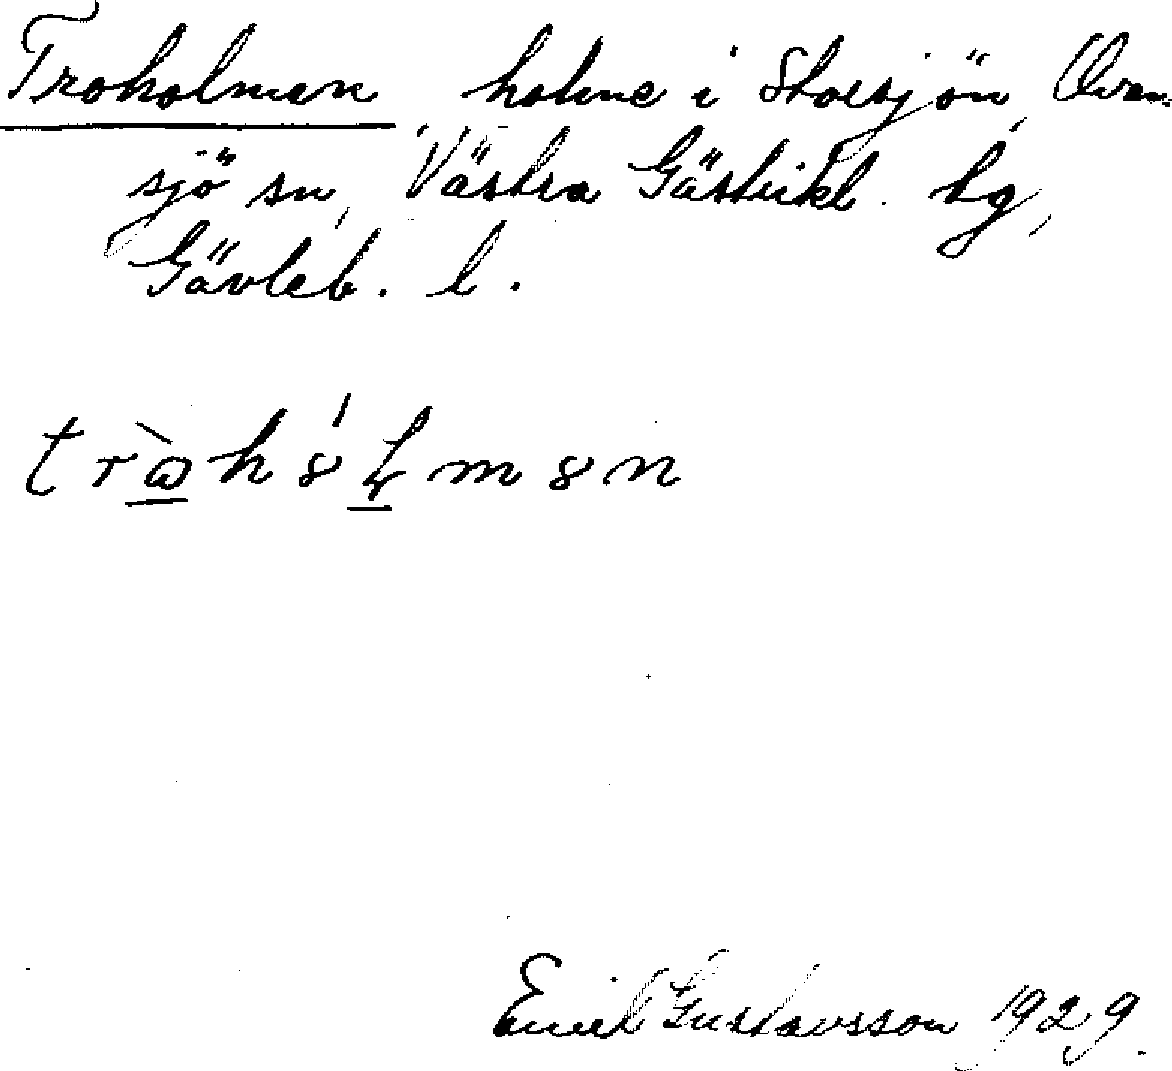 Troholmen holme i Storsjön, Ovan-
sjö sn, Västra Gästrikl. tg,
Gävleb. l.
trὼ̲hó̵ɫ̲mən
Emil Gustavsson 1929.